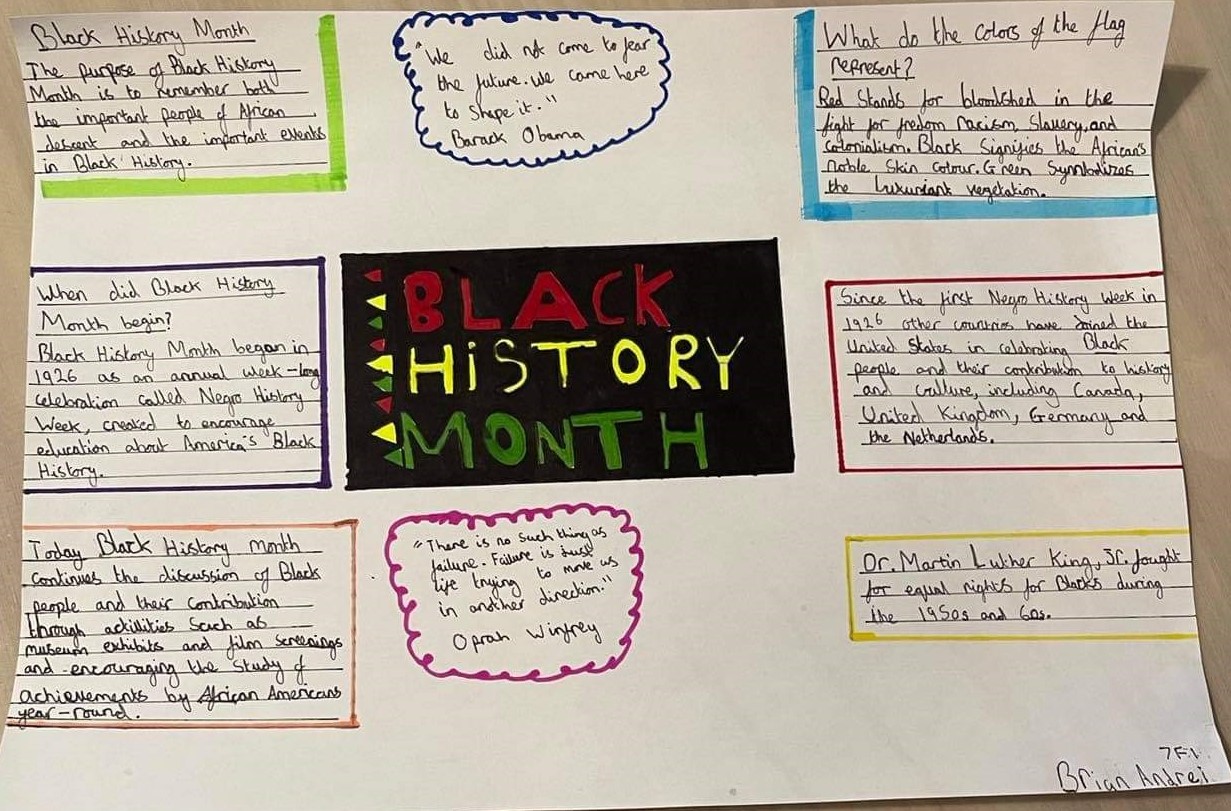 Black History Month
The purpose of Black History
Month is to remember both
the important people of African
descent and the important events
in Black History.
"We did not come to fear
the future. We came here
to shape it."
Barack Obama
What do the colors of the flag
represent?
Red Stands for bloodshed in the
fight for fredom racism, Slavery, and
colonialism. Black Signifies the African's
noble Skin colour. Green Symbolizes
the Luxuriant vegetation.
When did Black History
Month begin?
Black History Month began in
1926 as an annual week-long
celebration called Negro History
Week, created to encourage
education about America's Black
History.
BLACK
HiSTORY
MONTH
Since the first Negro History Week in
1926 other countries have Joined the
United States in celebrating Black
people and their contribution to history
and culture, including Canada,
United Kingdom, Germany and
the Netherlands.
Today Black History month
continues the discussion of Black
people and their contribution
through activities Such as
museum exhibits and film screenings
and encouraging the Study of
achievements by African Americans
year-round.
"There is no such thing as
failure. Failure is just
life trying to move us
in another direction."
Oprah Winfrey
Dr. Martin Luther King, Jr. fought
for equal rights for Blacks during
the 1950s and 60s.
7F1
Brian Andrei